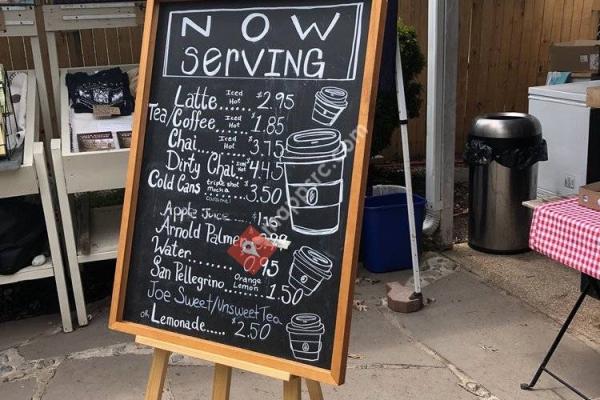 NOW
SERVING
Latte Iced Hot $2.95
Tea/Coffee Iced Hot $1.85
Chai Iced Hot $3.75
Dirty Chai Iced Hot $4.45
Cold Cans triple shot mocha caramel $3.50
Apple Juice
Arnold Palmer
Water 0.95
San Pellegrino Orange Lemon 1.50
Joe Sweet/Unsweet Tea
or Lemonade $2.50